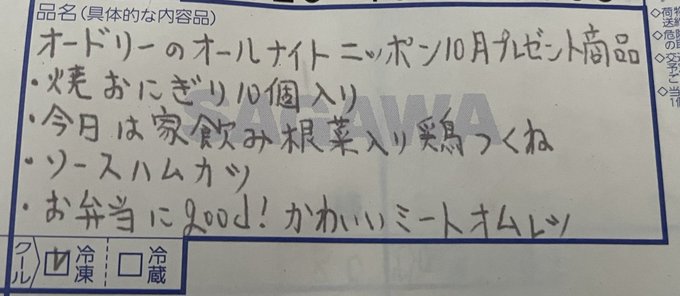 品名(具体的な内容品)
オードリーのオールナイトニッポン10月プレゼント商品
・焼おにぎり10個入り
・今日は家飲み根菜入り鶏つくね
SAGAWA
・ソースハムカツ
・お弁当にgood!かわいいミートオムレツ
クール 冷凍 冷蔵